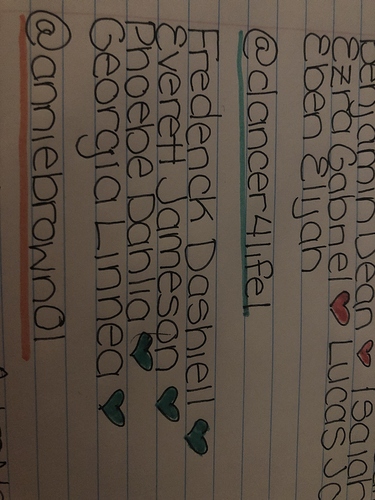 Benjamin Dean Isaiah
Ezra Gabriel Lucas Jo
Eben Elijah
@dancer4life1
Frederick Dashiell
Everett Jameson
Phoebe Dahlia
Georgia Linnea
@anniebrown01